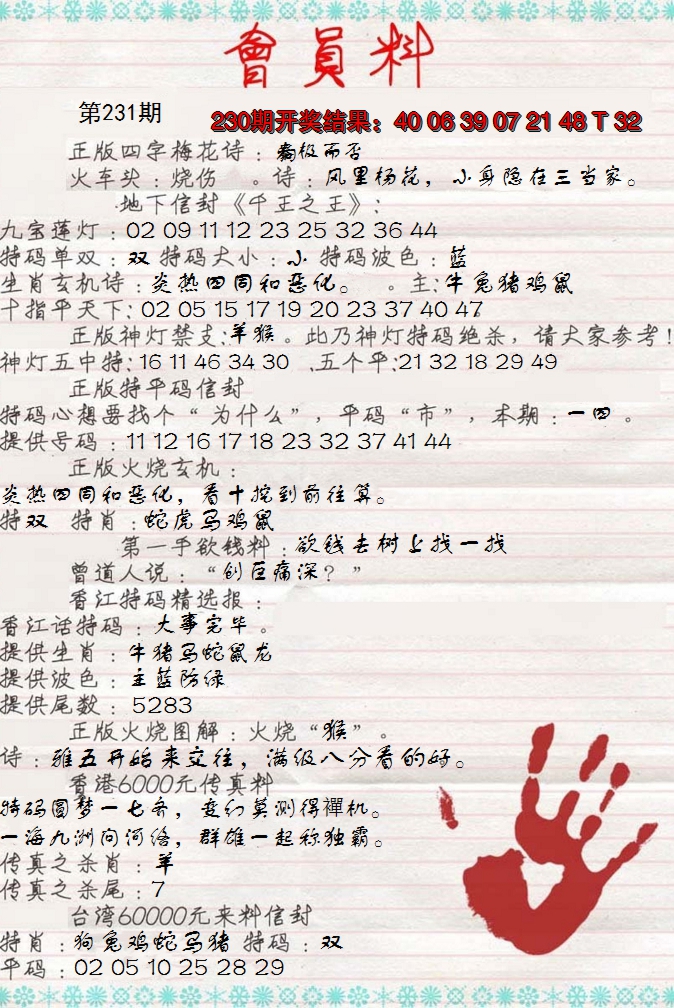 會員料
第231期
230期开奖结果：40 06 39 07 21 48 T 32
正版四字梅花诗：痛极而否
火车头：烧伤 。诗：风里杨花，小身隐在三当家。
地下信封《千王之王》：
九宝莲灯：02 09 11 12 23 25 32 36 44
特码单双：双 特码大小：小 特码波色：蓝
生肖玄机诗：炎热四周和恶化。 。主：牛兔猪鸡鼠
十指平天下：02 05 15 17 19 20 23 37 40 47
正版神灯禁支：羊猴。此乃神灯特码绝杀，请大家参考！
神灯五中特：16 11 46 34 30 .五个平：21 32 18 29 49
正版特平码信封
特码心想要找个“为什么”，平码“市”，本期：一四。
提供号码：11 12 16 17 18 23 32 37 41 44
正版火烧玄机：
炎热四周和恶化，看十挖到前往算。
特双 特肖：蛇虎马鸡鼠
第一手欲钱料：欲钱去树上找一找
曾道人说：“创巨痛深？”
香江特码精选报：
香江话特码：大事完毕。
提供生肖：牛猪马蛇鼠龙
提供波色：主蓝防绿
提供尾数：5283
正版火烧图解：火烧“猴”。
诗：雅五开始来交往，满级八分看的好。
香港6000元传真料
特码圆梦一七奇，变幻莫测得禪机。
一海九洲问河络，群雄一起称独霸。
传真之杀肖：羊
传真之杀尾：7
台湾60000元来料信封
特肖：狗兔鸡蛇马猪 特码：双
平码：02 05 10 25 28 29